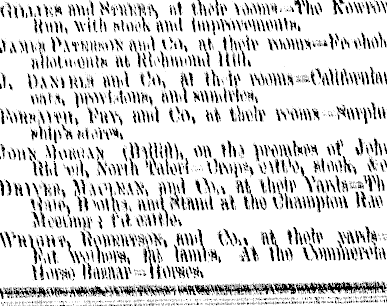 GILLIES and STREET, at their rooms—The Kowron
Run, with stock and improvements.
JAMES PATERSON and Co, at their rooms—Freehold
allotments at Richmond Hill.
J. DANIELS and Co, at their rooms—Californian
oats, provisions, and sundries.
FORSAITH, FRY, and Co, at their rooms—Surplus
ship's stores.
JOHN MORGAN (Bailiff), on the premises of John
North Taieri—Crops, cattle, stock, &c
DRIVER, MACLEAN, and Co., at their Yards—The
Gate, Booths, and Stand at the Champion Race
Meeting; fat cattle.
WRIGHT, ROBERTSON, and Co., at their yards—
Fat wethers, fat lambs. At the Commercial
Horse Bazaar—Horses.